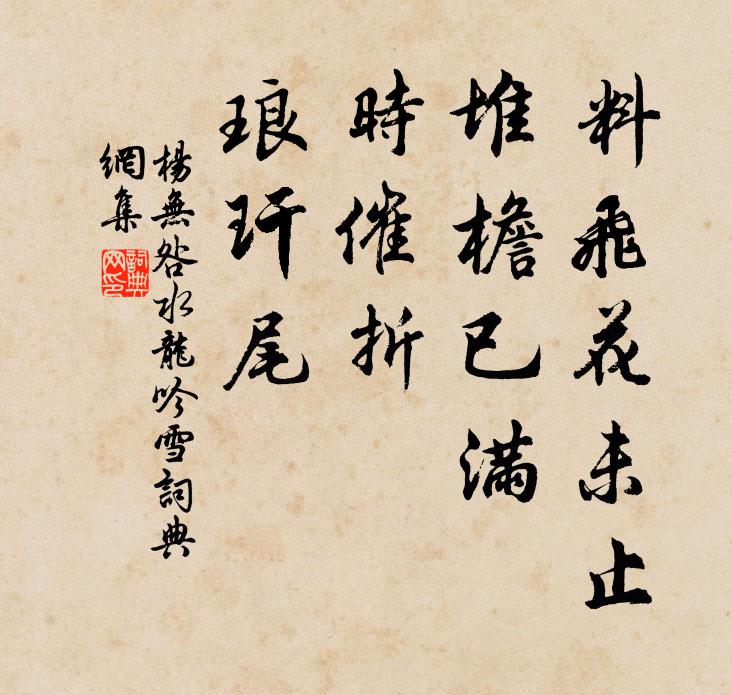 料飛花未止
堆檐已滿
時催折
琅玕尾
楊無咎水龍吟雪詞典
網集
詞典
网印